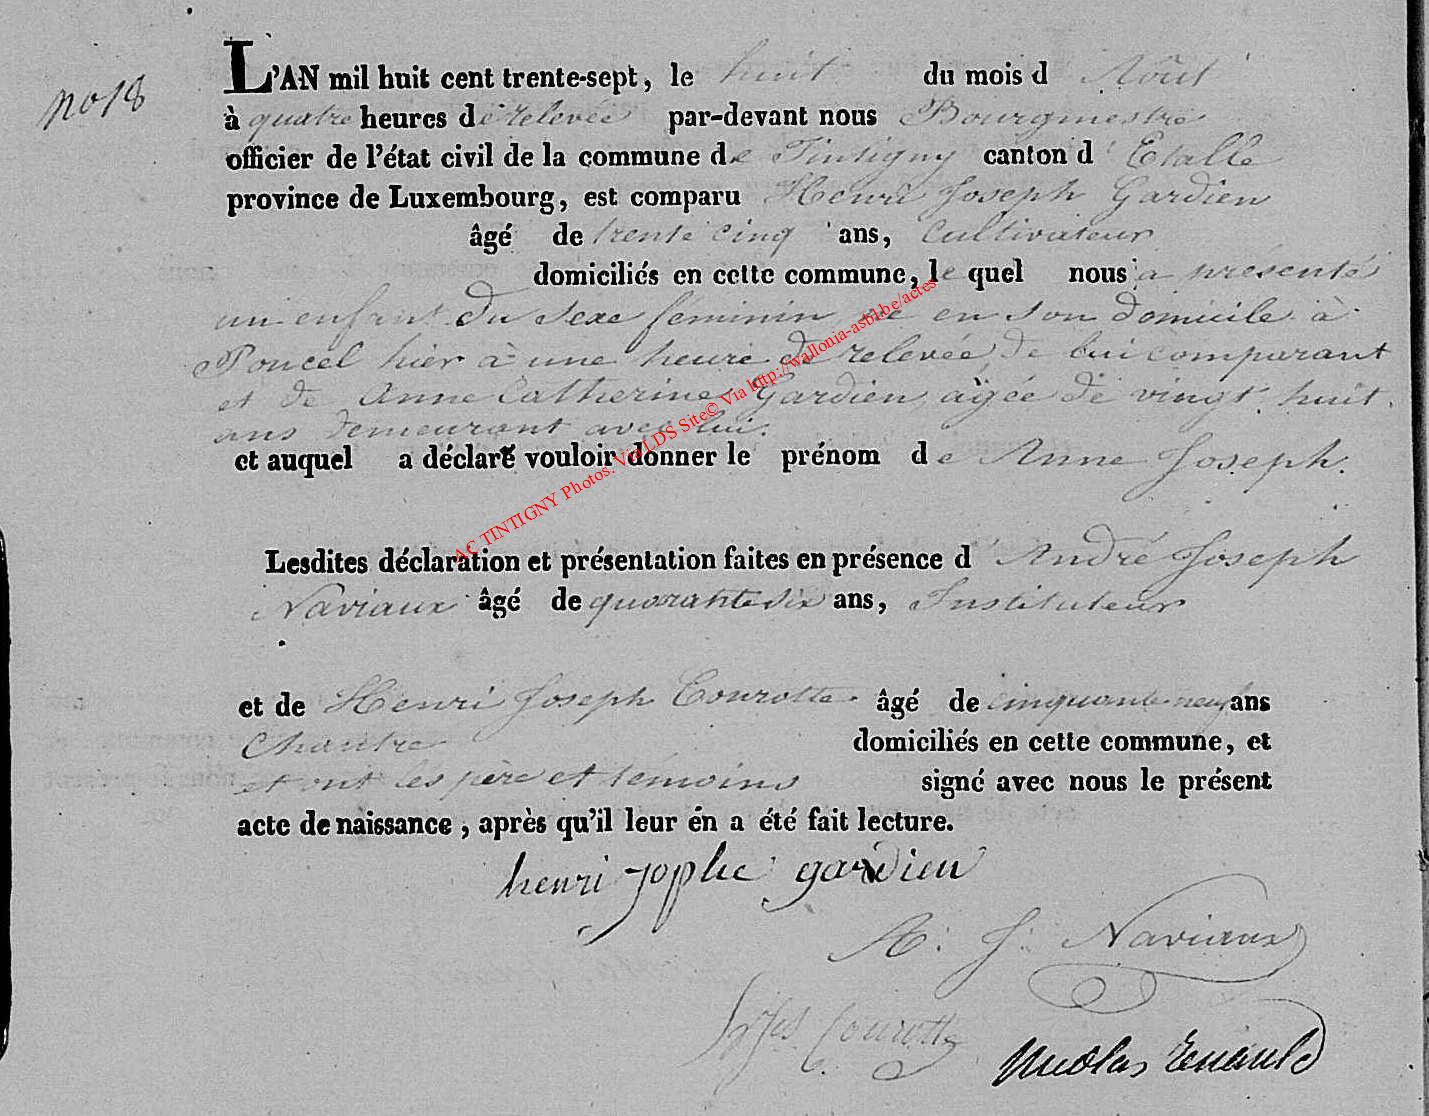 no 18
L'AN mil huit cent trente-sept, le huit du mois d'Août
à quatre heures de relevée par-devant nous Bourgmestre
officier de l'état civil de la commune de Tintigny canton d'Etalle
province de Luxembourg, est comparu Henri Joseph Gardien
âgé de trente cinq ans, Cultivateur
domiciliés en cette commune, le quel nous a présenté
un enfant du sexe feminin, né en son domicile à
Poncel hier à une heure de relevée, de lui comparant
et de Anne Catherine Gardien, agée de vingt huit
ans demeurant avec lui.
et auquel a déclaré vouloir donner le prénom de Anne Joseph.
Lesdites déclaration et présentation faites en présence d'André Joseph
Naviaux âgé de quarante six ans, Instituteur
et de Henri Joseph Courotte âgé de cinquante neuf ans
Chantre domiciliés en cette commune, et
et ont les père et témoins signé avec nous le présent
acte de naissance, après qu'il leur en a été fait lecture.
henri jophe gardien
A: J: Naviaux
hjs Courotte
Nicolas Renauld
AC TINTIGNY Photos. Via LDS Site© Via http://wallonia-asbl.be/actes